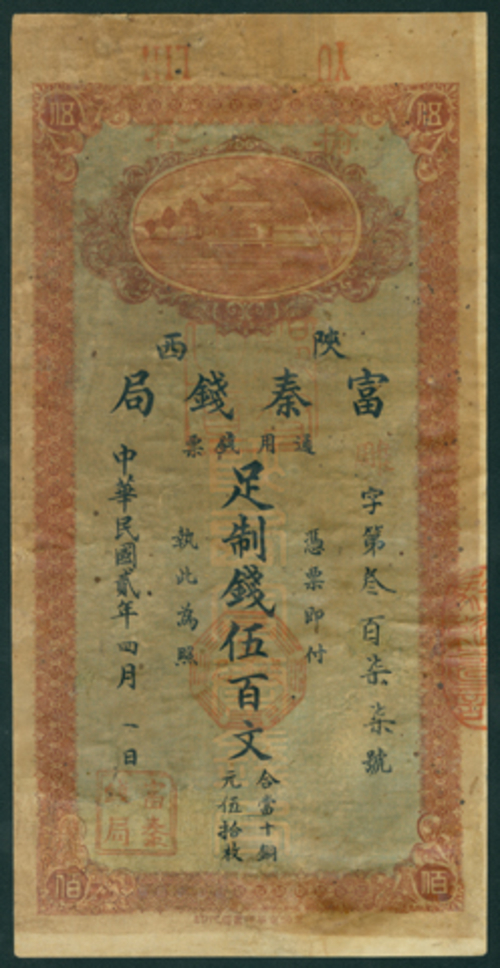 伍
伍
陝西
富秦錢局
通用錢票
字第叄百柒柒號
憑票即付
足制錢伍百文
合當十銅元伍拾枚
執此為照
中華民國貳年四月一日
富秦錢局
佰
佰